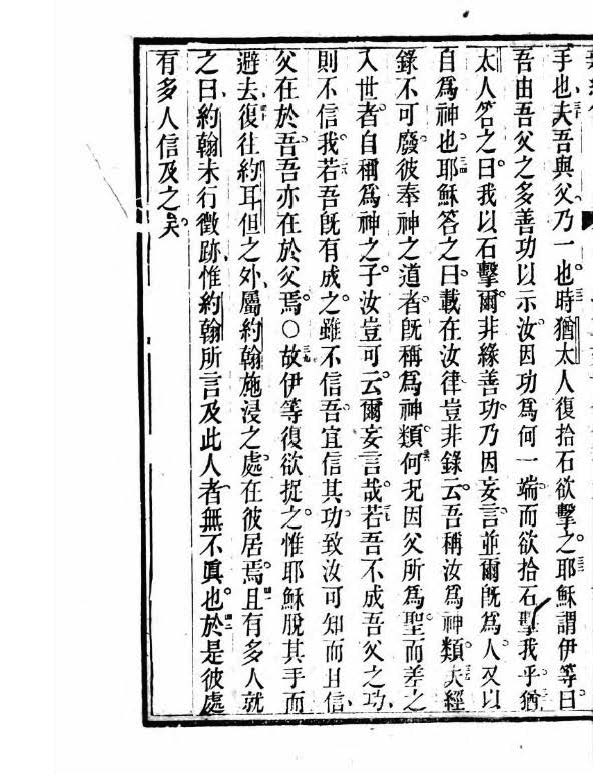 手也夫吾與父乃一也時猶太人復拾石欲擊之耶穌謂伊等曰
吾由吾父之多善功以示汝因功爲何一端而欲拾石擊我乎猶
太人答之曰我以石擊爾非緣善功乃因妄言並爾旣爲人又以
自爲神也耶穌答之曰載在汝律豈非錄云吾稱汝爲神類夫經
錄不可廢彼奉神之道者旣稱爲神類何况因父所爲聖而差之
入世者自稱爲神之子汝豈可云爾妄言哉若吾不成吾父之功
則不信我若吾旣有成之雖不信吾宜信其功致汝可知而且信
父在於吾吾亦在於父焉〇故伊等復欲捉之惟耶穌脫其手而
避去復往約耳但之外屬約翰施浸之處在彼居焉且有多人就
之曰約翰未行徵跡惟約翰所言及此人者無不眞也於是彼處
有多人信及之矣